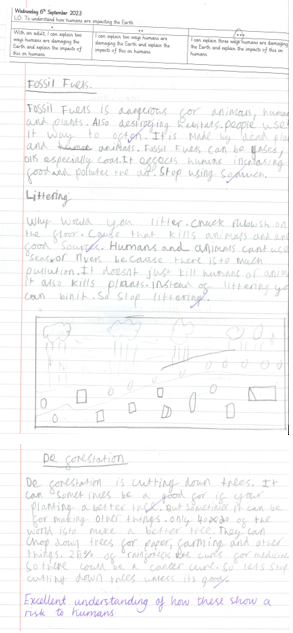 Wednesday 6th September 2023
LO: To understand how humans are impacting the Earth
With an adult, I can explain two ways humans are damaging the Earth and explain the impacts of this on humans.
I can explain two ways humans are damaging the Earth and explain the impacts of this on humans.
I can explain three ways humans are damaging the Earth and explain the impacts of this on humans.
Fossil Fuels.
Fossil Fuels is dangerous for animals, humans
and plants. Also destroying habitats. people use
it way to often. It is made by dead plants
and animals. Fossil Fuels can be gases,
oils especially coal. It effects humans increasing
food and pollutes the air. Stop using so much.
Littering
Why would you litter. Chuck rubbish on
the floor. Cause that kills animals and
food source. Humans and animals cant use
rivers because there is to much
pullution. It doesnt just kill humans or animals
it also kills plants. instead of littering you
can bin it. So stop littering.
De forestation
De forestation is cutting down trees. It
can sometimes be a good for if your
planting a better tree. But sometimes it can be
for making other things. only of the
world is to make a better tree. They can
chop down trees for paper, farming and other
things. 25% of rainforests are cures for medicine
So there could be a cancer cure. So lets stop
cutting down trees unless its good.
Excellent understanding of how these show a
risk to humans